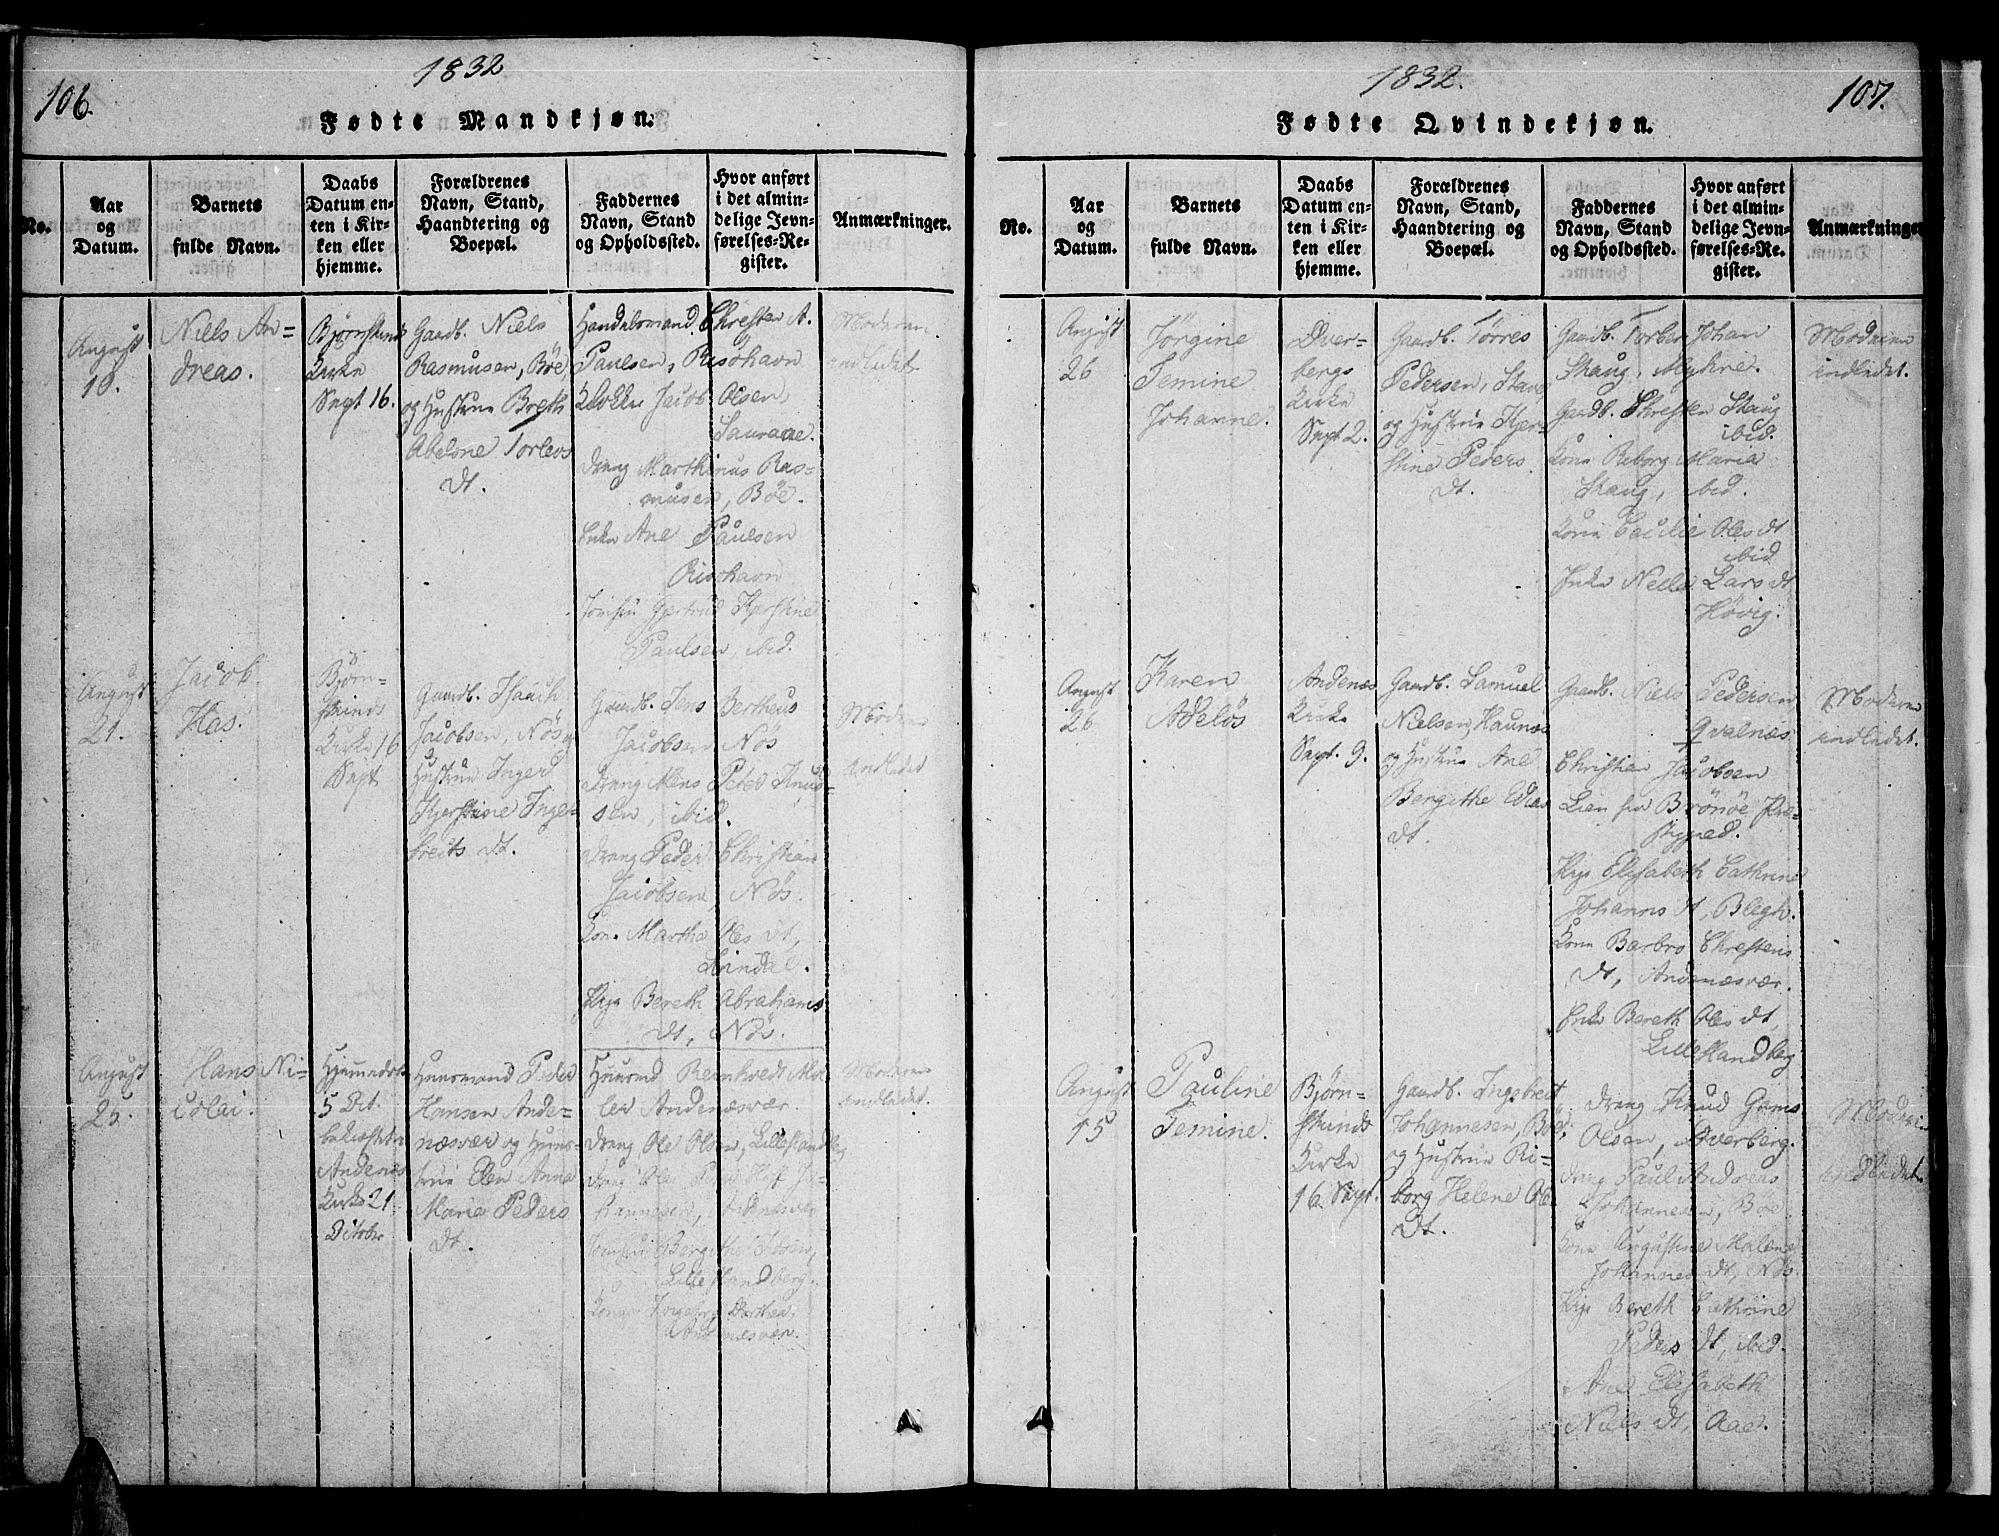 106.
1832
Fødte Mandkjøn.
No.
Aar
og
Datum.
Barnets
fulde Navn.
Daabs
Datum en-
ten i Kir-
ken eller
hjemme.
Forældrenes
Navn, Stand,
Haandtering og
Boepæl.
Faddernes
Navn, Stand
og Opholdssted.
Hvor anført
i det almin-
delige Jevn-
førelses-Re-
gister.
Anmærkninger.
August
10.
Niels An=
dreas.
Kirke
Sept 16.
Gaardb. Niels
Rasmusen, Böe,
og Hustrue Breth
Abelone Torlevs
Dt.
Chresten A.
Paulsen, Risöhavn
Jacob Olsen,
Drang Marthinus Ras=
musen, Böe.
Enke Ane Paulsen
Risöhavn
Gjertrud Kjerstine
Paulsen, ibid.
Moderen
indledet
August
21.
Jacob
Has.
Bjørn=
skinds
Kirke 16
Sept
Gaardb. Isach
Jacobsen, Nös og
Hustrue Inger
Kjerstine Inge=
breits Dt.
Gaardb. Jens Bertheus
Jacobsen Nös
Drang Mons Peter Knud=
sen, ibid.
Drang Peder Christian
Jacobsen, Nös.
Kone Martha Oles Dt,
Pige Bereth Abrahams
Dt, Nös.
Moderen
indledet
August
25.
Hans Ni=
colai.
5 Oct.
Andenæs
Kirke 21
October
Huusmand Peder
Hansen Ande=
næsvær og Hus=
true Elen Anna
Maria Peders
Dt.
Andenæsvær.
Drang Ole Olsen, Lille Handberg
Andenæsvær
Lille Handberg.
Andenæsvær.
Moderen
indledet.
1832.
107.
Fødte Qvindekjøn.
No.
Aar
og
Datum.
Barnets
fulde Navn.
Daabs
Datum en-
ten i Kir-
ken eller
hjemme.
Forældrenes
Navn, Stand,
Haandtering og
Boepæl.
Faddernes
Navn, Stand
og Opholdssted.
Hvor anført
i det almin-
delige Jevn-
førelses-Re-
gister.
Anmærkninger
August
26
Jörgine
Jemine
Johanne.
Over=
bergs
Kirke
Sept 2.
Gaardb. Törres
Pedersen, Stave
og Hustrue Kjer=
stine Peders
Dt.
Gaardb. Torber Johan
Skaug, Myhre.
Gaardb. Chresten Skaug
ibid.
Kone Riborg Maria
Skaug, ibid.
Kone Cæcilie Oles Dt
ibid
Enke Lars Dt
Hövig.
Moderen
indledet.
August
26
Karen
Adelös
Andenæs
Kirke
Sept. 9.
Gaardb. Samuel
Nielsen, Haunæs
og Hustrue Ane
Bergithe
Dt.
Gaardb. Niels Pedersen
Qvalnæs
Christian Jacobsen
Lien fra Brönöe Præ=
Pige Elisabeth Cathrine
Johanns Dt, Blegh.
Kone Barbro Chrestens
Dt, Andenæsvær.
Enke Bereth Oles Dt,
Lille Handberg
Moderen
indledet.
August
15
Pauline
Jemine.
Bjørn=
skinds
Kirke
16. Sept.
Gaardb. Ingebreit
Johannesen, Böe,
og Hustrue Ri=
borg Helene Ole
Dt.
Drang Knud
Olsen, Averberg.
Drang Paul Andreas
Johannesen, Böe
Kone Augustine Malene
Johannes Dt, Nös.
Pige Bereth Cathrine
Peders Dt, ibid.
Ane Elisabeth
Niels Dt, Aae.
Moderen
indledet.